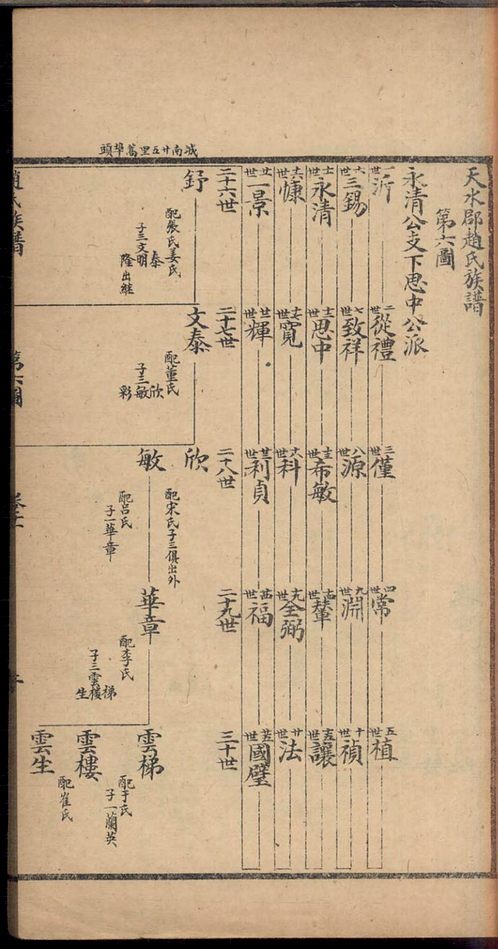 城南廿五里蒿埠頭
天水郡趙氏族譜
第六圖
永清公支下思中公派
一世 沂
二世 從禮
三世 僅
四世 常
五世 植
六世 三錫
七世 致祥
八世 源
九世 淵
十世 禎
十一世 永清
十二世 思中
十三世 希敏
十四世 輦
十五世 讓
十六世 慷
十七世 寬
十八世 科
十九世 全弼
廿世 法
廿一世 一景
廿二世 輝
廿三世 利貞
廿四世 福
廿五世 國璧
二十六世
二十七世
二十八世
二十九世
三十世
舒
配張氏姜氏
子三文泰明隆出繼
文泰
配董氏
子三欣敏彩
欣
配宋氏子三俱出外
敏
配呂氏
子一華章
華章
配李氏
子三雲梯樓生
雲梯
配于氏
子一蘭英
雲樓
配崔氏
雲生
趙氏族譜
第六圖